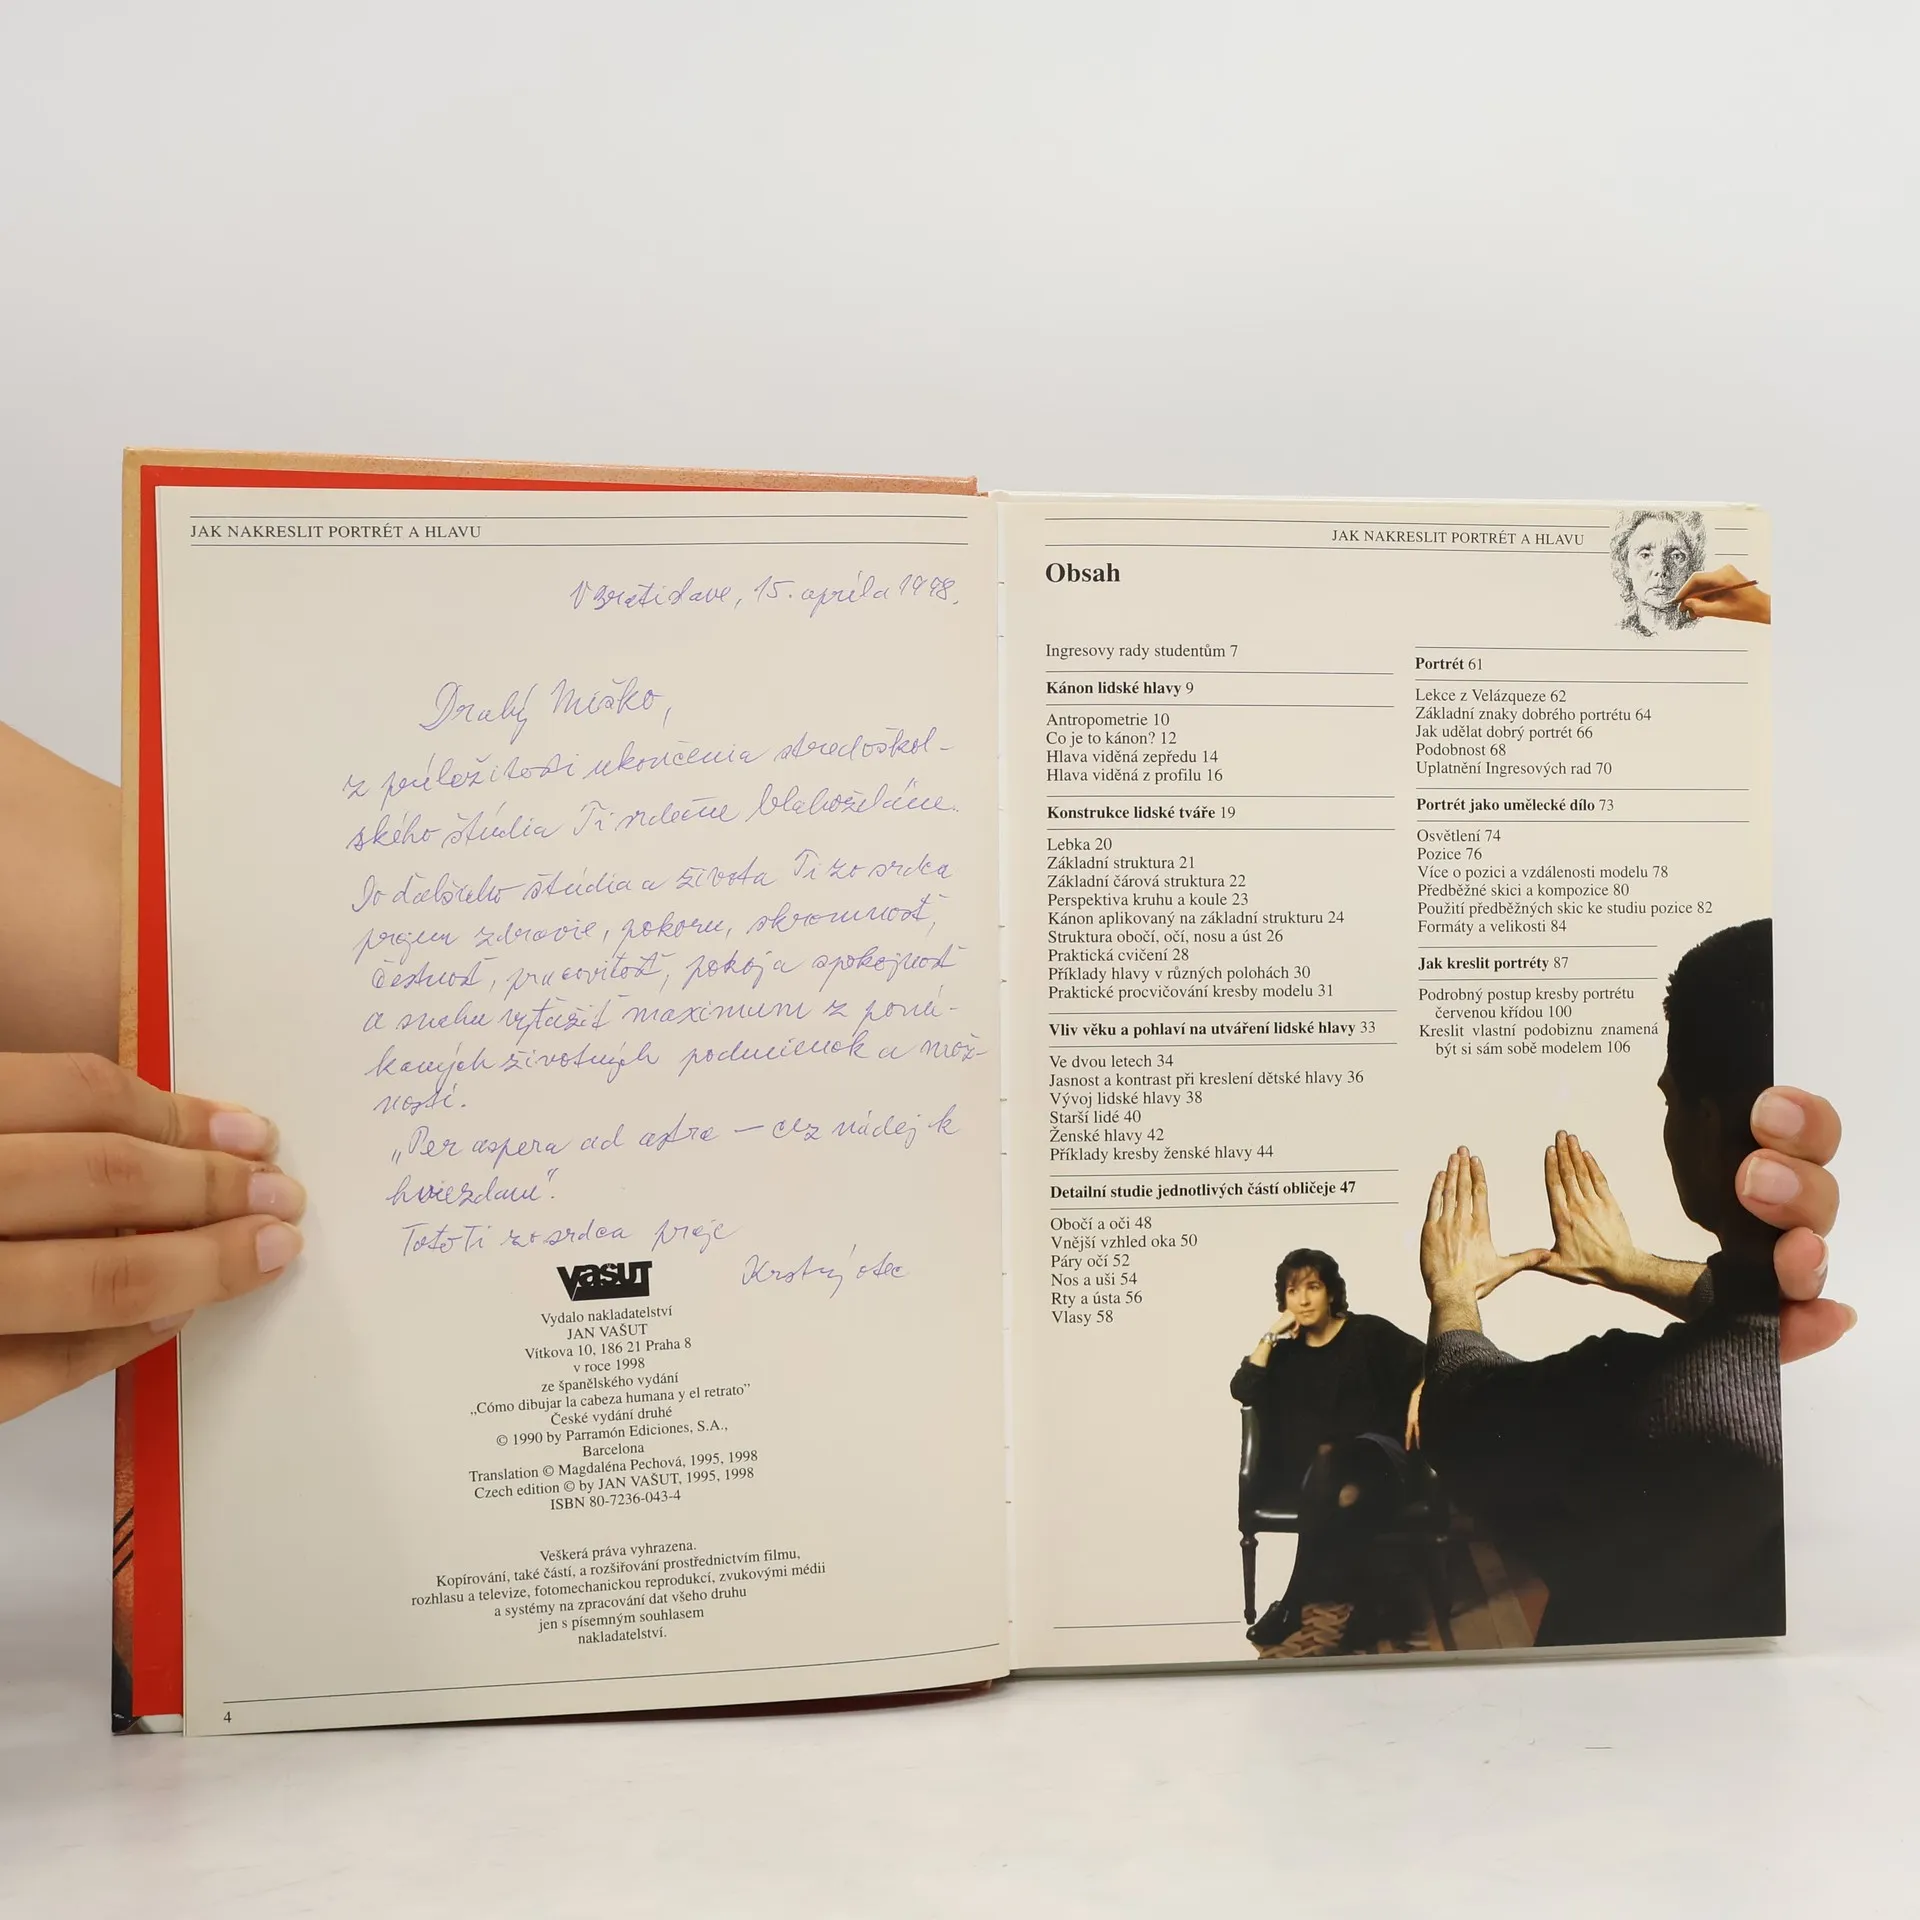 JAK NAKRESLIT PORTRÉT A HLAVU
V Bratislave, 15. apríla 1998.
Drahý Miško,
z príležitosti ukončenia stredoškol-
ského štúdia Ti srdečne blahoželáme.
Do ďalšieho štúdia a života Ti zo srdca
prajem zdravie, pokoru, skromnosť,
čestnosť, pracovitosť, pokoj a spokojnosť
a snahu vyťažiť maximum z ponú-
kaných životných podmienok a mož-
ností.
„Per aspera ad astra — cez nádej k
hviezdam".
Toto Ti zo srdca praje
Krstný otec
vašut
Vydalo nakladatelství
JAN VAŠUT
Vítkova 10, 186 21 Praha 8
v roce 1998
ze španělského vydání
„Cómo dibujar la cabeza humana y el retrato"
České vydání druhé
© 1990 by Parramón Ediciones, S.A.,
Barcelona
Translation © Magdaléna Pechová, 1995, 1998
Czech edition © by JAN VAŠUT, 1995, 1998
ISBN 80-7236-043-4
Veškerá práva vyhrazena.
Kopírování, také částí, a rozšiřování prostřednictvím filmu,
rozhlasu a televize, fotomechanickou reprodukcí, zvukovými médii
a systémy na zpracování dat všeho druhu
jen s písemným souhlasem
nakladatelství.
4
JAK NAKRESLIT PORTRÉT A HLAVU
Obsah
Ingresovy rady studentům 7
Kánon lidské hlavy 9
Antropometrie 10
Co je to kánon? 12
Hlava viděná zepředu 14
Hlava viděná z profilu 16
Konstrukce lidské tváře 19
Lebka 20
Základní struktura 21
Základní čárová struktura 22
Perspektiva kruhu a koule 23
Kánon aplikovaný na základní strukturu 24
Struktura obočí, očí, nosu a úst 26
Praktická cvičení 28
Příklady hlavy v různých polohách 30
Praktické procvičování kresby modelu 31
Vliv věku a pohlaví na utváření lidské hlavy 33
Ve dvou letech 34
Jasnost a kontrast při kreslení dětské hlavy 36
Vývoj lidské hlavy 38
Starší lidé 40
Ženské hlavy 42
Příklady kresby ženské hlavy 44
Detailní studie jednotlivých částí obličeje 47
Obočí a oči 48
Vnější vzhled oka 50
Páry očí 52
Nos a uši 54
Rty a ústa 56
Vlasy 58
Portrét 61
Lekce z Velázqueze 62
Základní znaky dobrého portrétu 64
Jak udělat dobrý portrét 66
Podobnost 68
Uplatnění Ingresových rad 70
Portrét jako umělecké dílo 73
Osvětlení 74
Pozice 76
Více o pozici a vzdálenosti modelu 78
Předběžné skici a kompozice 80
Použití předběžných skic ke studiu pozice 82
Formáty a velikosti 84
Jak kreslit portréty 87
Podrobný postup kresby portrétu
červenou křídou 100
Kreslit vlastní podobiznu znamená
být si sám sobě modelem 106